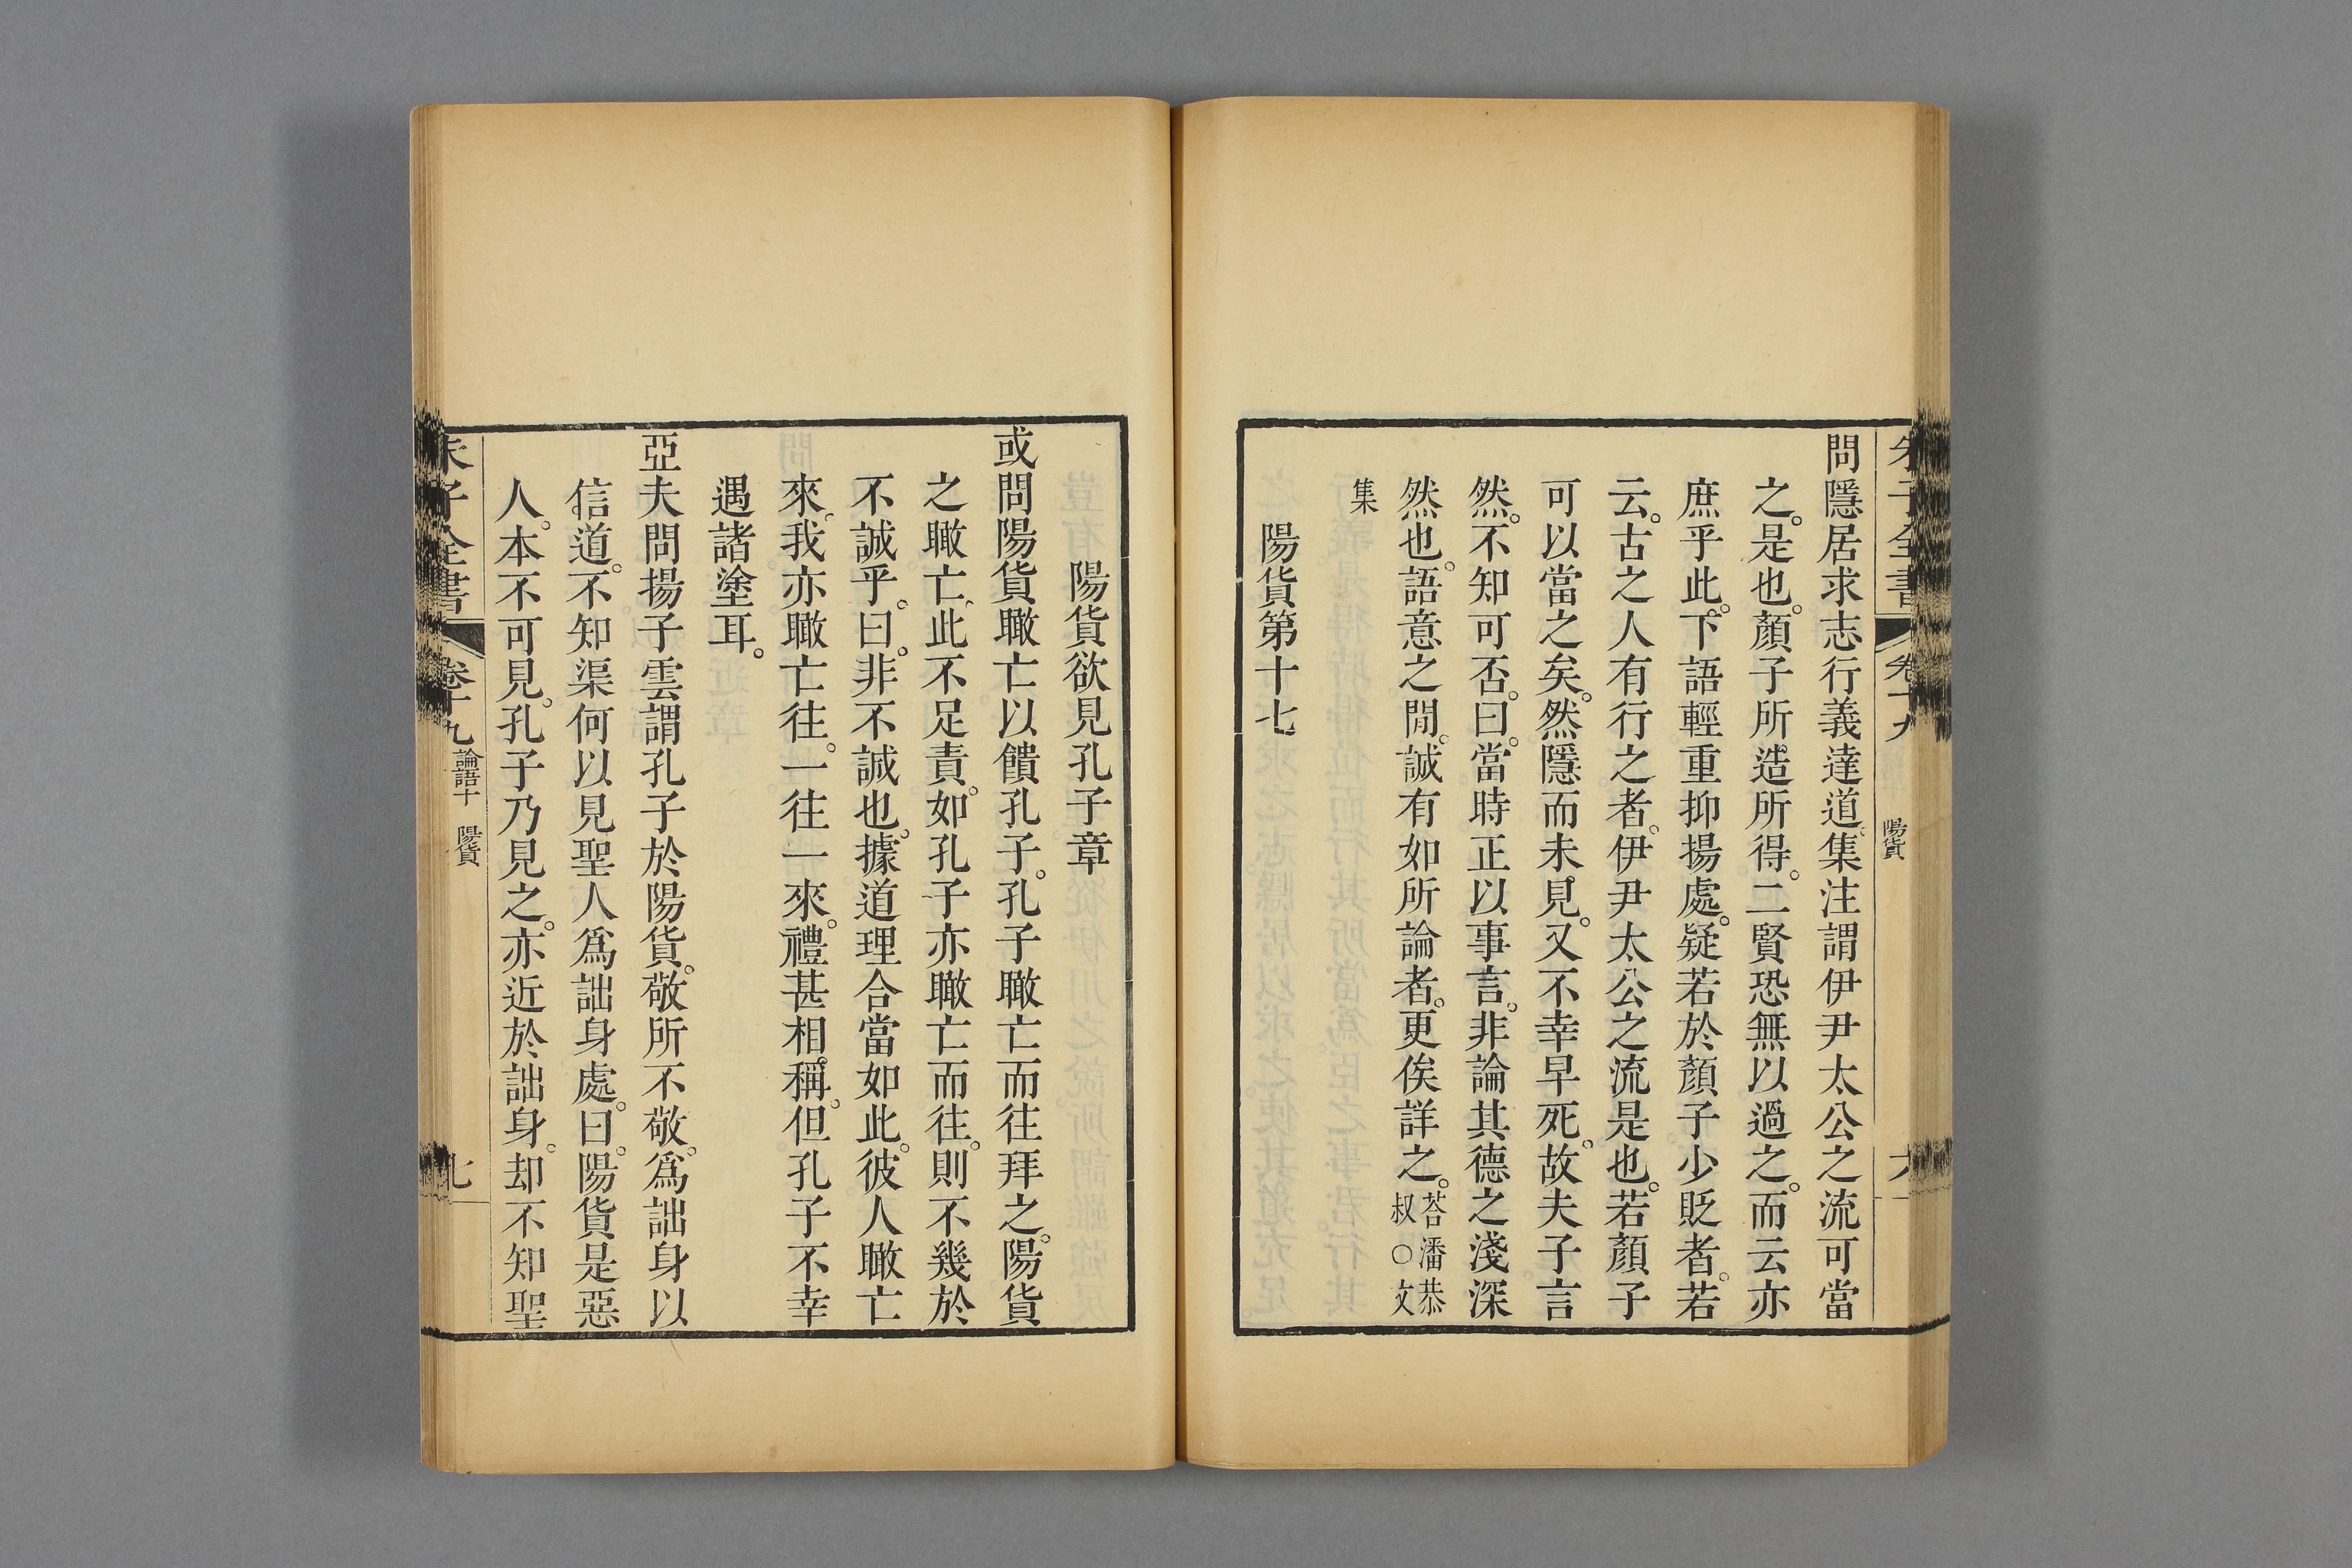 朱子全書 卷十九 陽貨
問隱居求志行義達道集注謂伊尹太公之流可當
之。是也。顏子所造所得。二賢恐無以過之。而云亦
庶乎此。下語輕重抑揚處。疑若於顏子少貶者。若
云。古之人有行之者。伊尹太公之流是也。若顏子
可以當之矣。然隱而未見。又不幸早死。故夫子言
然。不知可否。曰。當時正以事言。非論其德之淺深
然也。語意之閒。誠有如所論者。更俟詳之。荅潘恭叔○文
集
陽貨第十七
陽貨欲見孔子章
或問陽貨瞰亡以饋孔子。孔子瞰亡而往拜之。陽貨
之瞰亡、此不足責。如孔子亦瞰亡而往。則不幾於
不誠乎。曰。非不誠也。據道理合當如此。彼人瞰亡
來。我亦瞰亡往。一往一來。禮甚相稱。但孔子不幸
遇諸塗耳。
亞夫問揚子雲謂孔子於陽貨。敬所不敬。爲詘身以
信道。不知渠何以見聖人爲詘身處。曰。陽貨是惡
人。本不可見。孔子乃見之。亦近於詘身。却不知聖
朱子全書 卷十九 論語十 陽貨 七